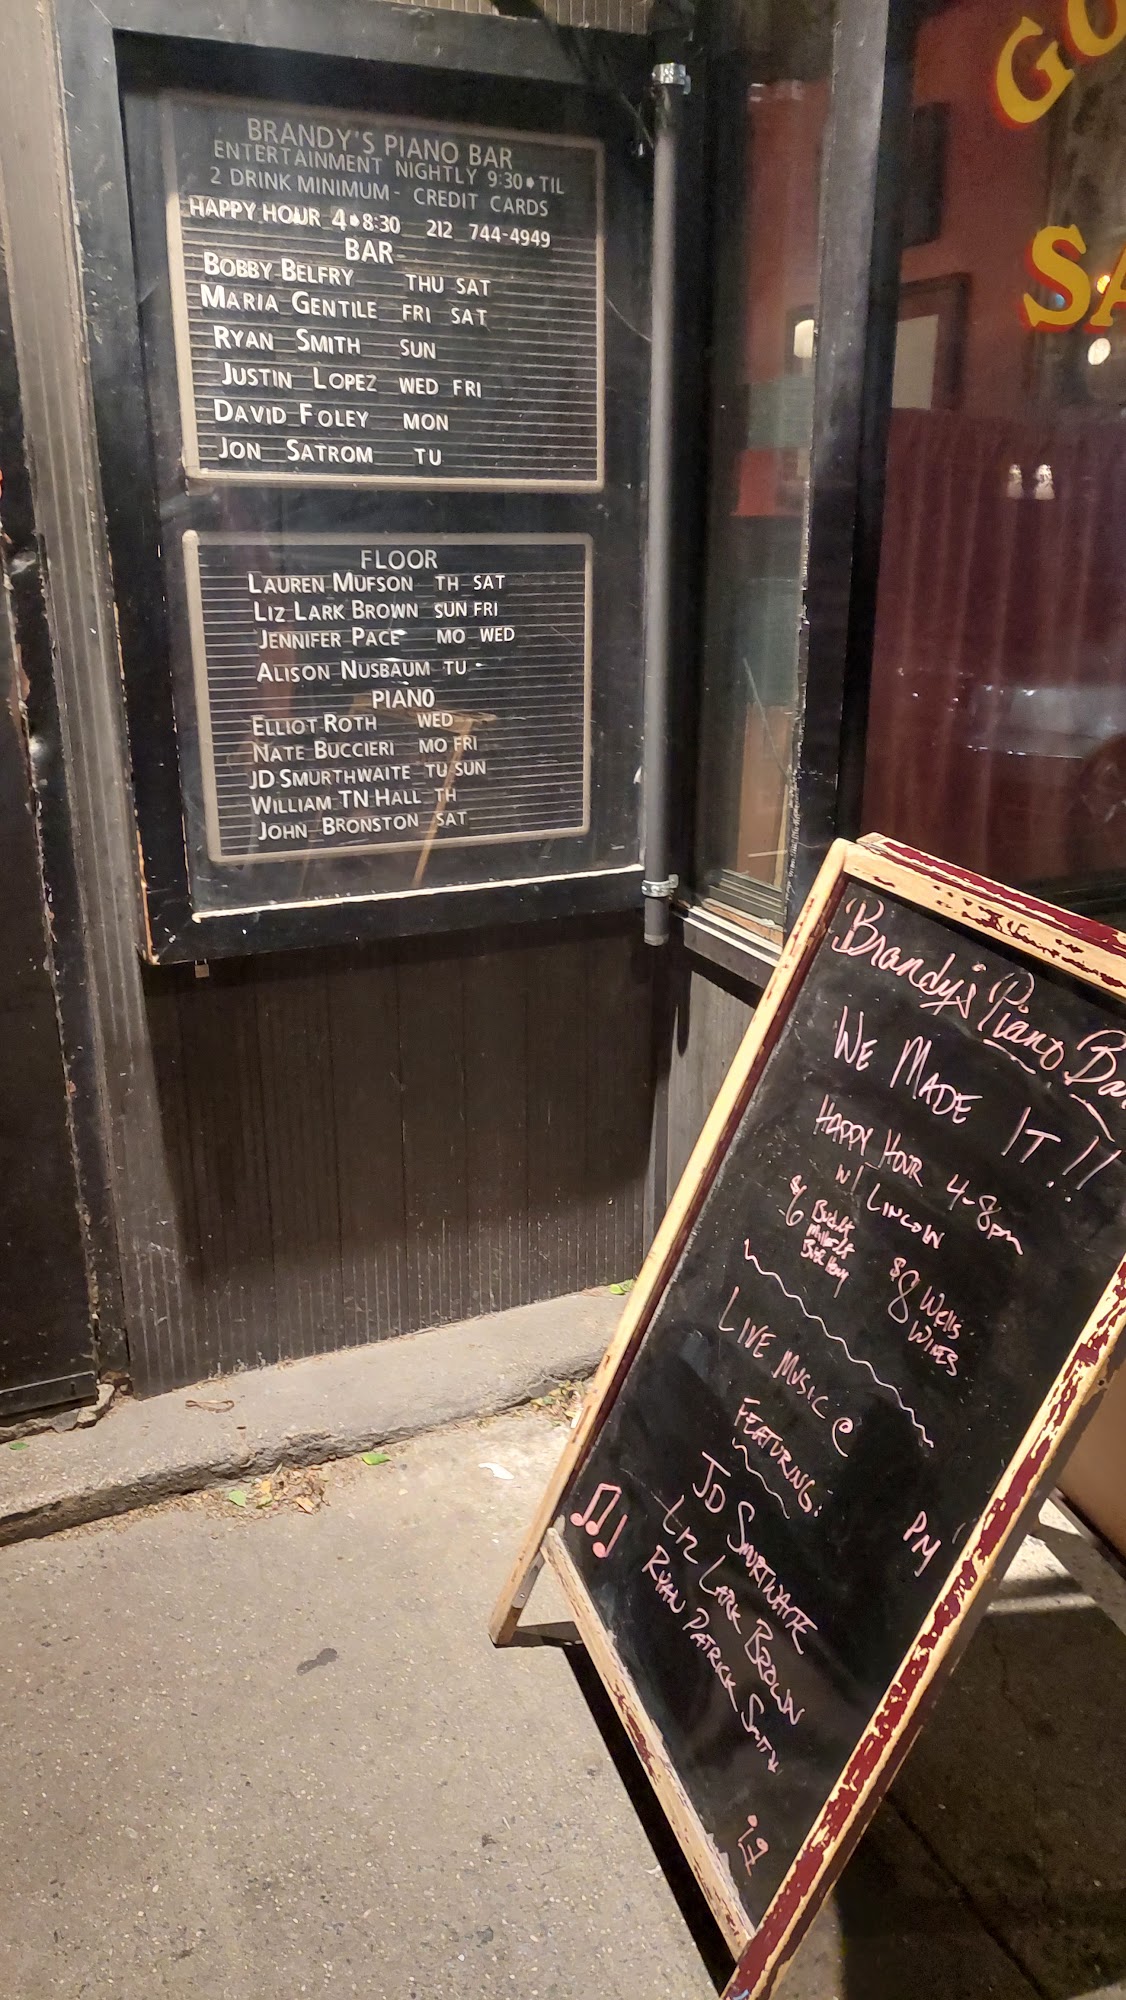 BRANDY'S PIANO BAR
ENTERTAINMENT NIGHTLY 9:30•TIL
2 DRINK MINIMUM- CREDIT CARDS
HAPPY HOUR 4•8:30 212 744-4949
BAR
BOBBY BELFRY THU SAT
MARIA GENTILE FRI SAT
RYAN SMITH SUN
JUSTIN LOPEZ WED FRI
DAVID FOLEY MON
JON SATROM TU
FLOOR
LAUREN MUFSON TH SAT
LIZ LARK BROWN SUN FRI
JENNIFER PACE MO WED
ALISON NUSBAUM TU
PIANO
ELLIOT ROTH WED
NATE BUCCIERI MO FRI
JD SMURTHWAITE TU SUN
WILLIAM TN HALL TH
JOHN BRONSTON SAT
GO
SA
Brandy's Piano Bar
WE MADE IT!!
HAPPY HOUR 4-8pm
w/ LINCOLN
$6
$8 Wells
WINES
LIVE MUSIC @
PM
FEATURING:
JD SMURTWAITE
LIZ LARK BROWN
RYAN PATRICK SMITH